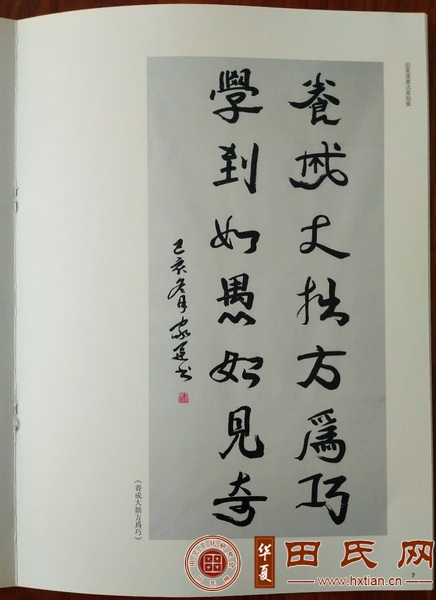 養成大拙方爲巧
學到如愚始見奇
己亥冬月
《養成大拙方爲巧》
7
华夏
田氏网
www.hxtian.cn